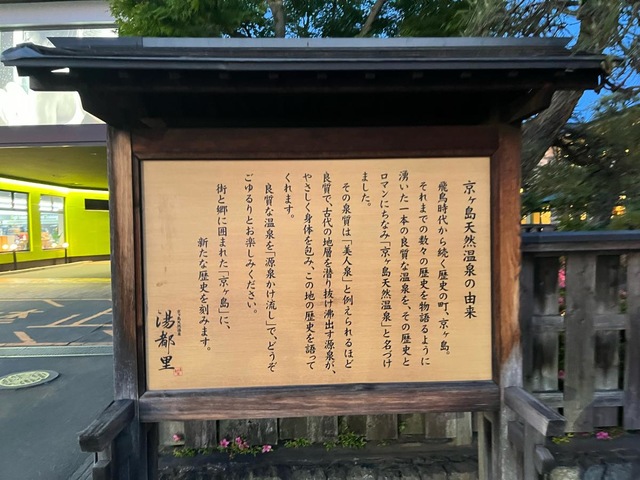 京ヶ島天然温泉の由来
飛鳥時代から続く歴史の町、京ヶ島。
それまでの数々の歴史を物語るように
湧いた一本の良質な温泉を、その歴史と
ロマンにちなみ「京ヶ島天然温泉」と名づけ
ました。
その泉質は「美人泉」と例えられるほど
良質で、古代の地層を潜り抜け沸出す源泉が、
やさしく身体を包み、この地の歴史を語って
くれます。
良質な温泉を「源泉かけ流し」で、どうぞ
ごゆるりとお楽しみください。
街と郷に囲まれた「京ヶ島」に、
新たな歴史を刻みます。
湯都里